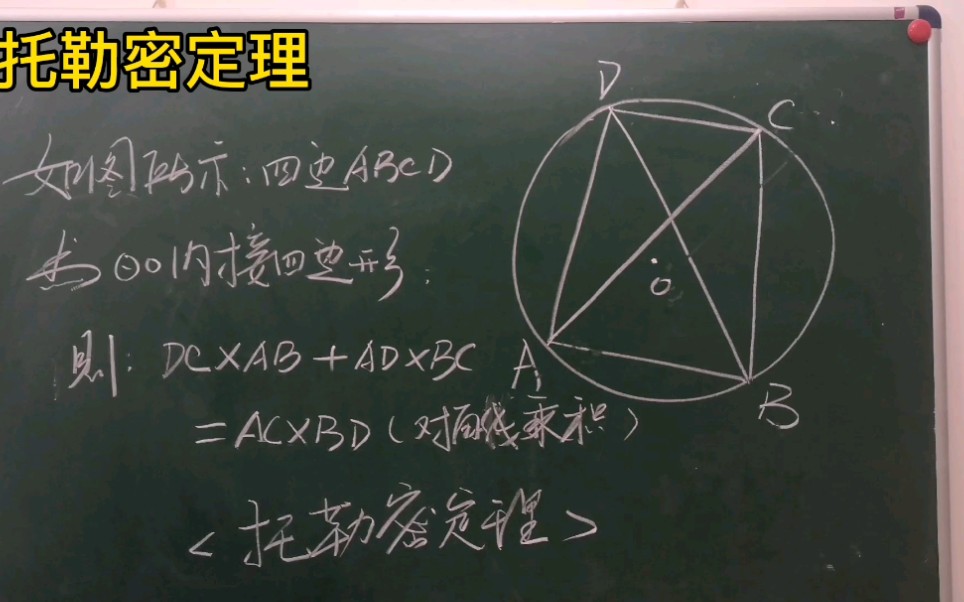 托勒密定理
如图所示:四边ABCD
为⊙O内接四边形;
则: DC×AB+AD×BC
=AC×BD(对角线乘积)
<托勒密定理>
D
C
O
A
B